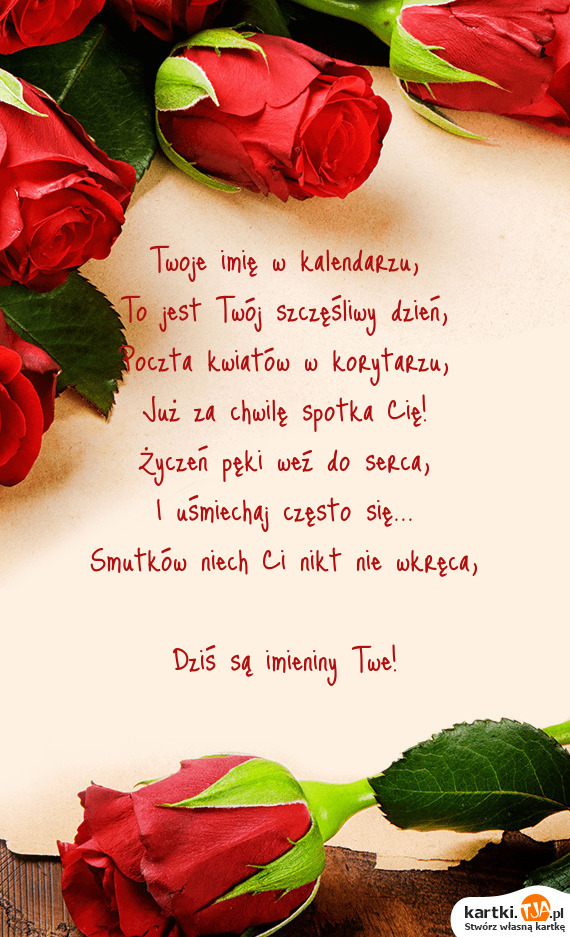 Twoje imię w kalendarzu,
To jest Twój szczęśliwy dzień,
Poczta kwiatów w korytarzu,
Już za chwilę spotka Cię!
Życzeń pęki weź do serca,
I uśmiechaj często się...
Smutków niech Ci nikt nie wkręca,
Dziś są imieniny Twe!
kartki.TJA.pl
Stwórz własną kartkę